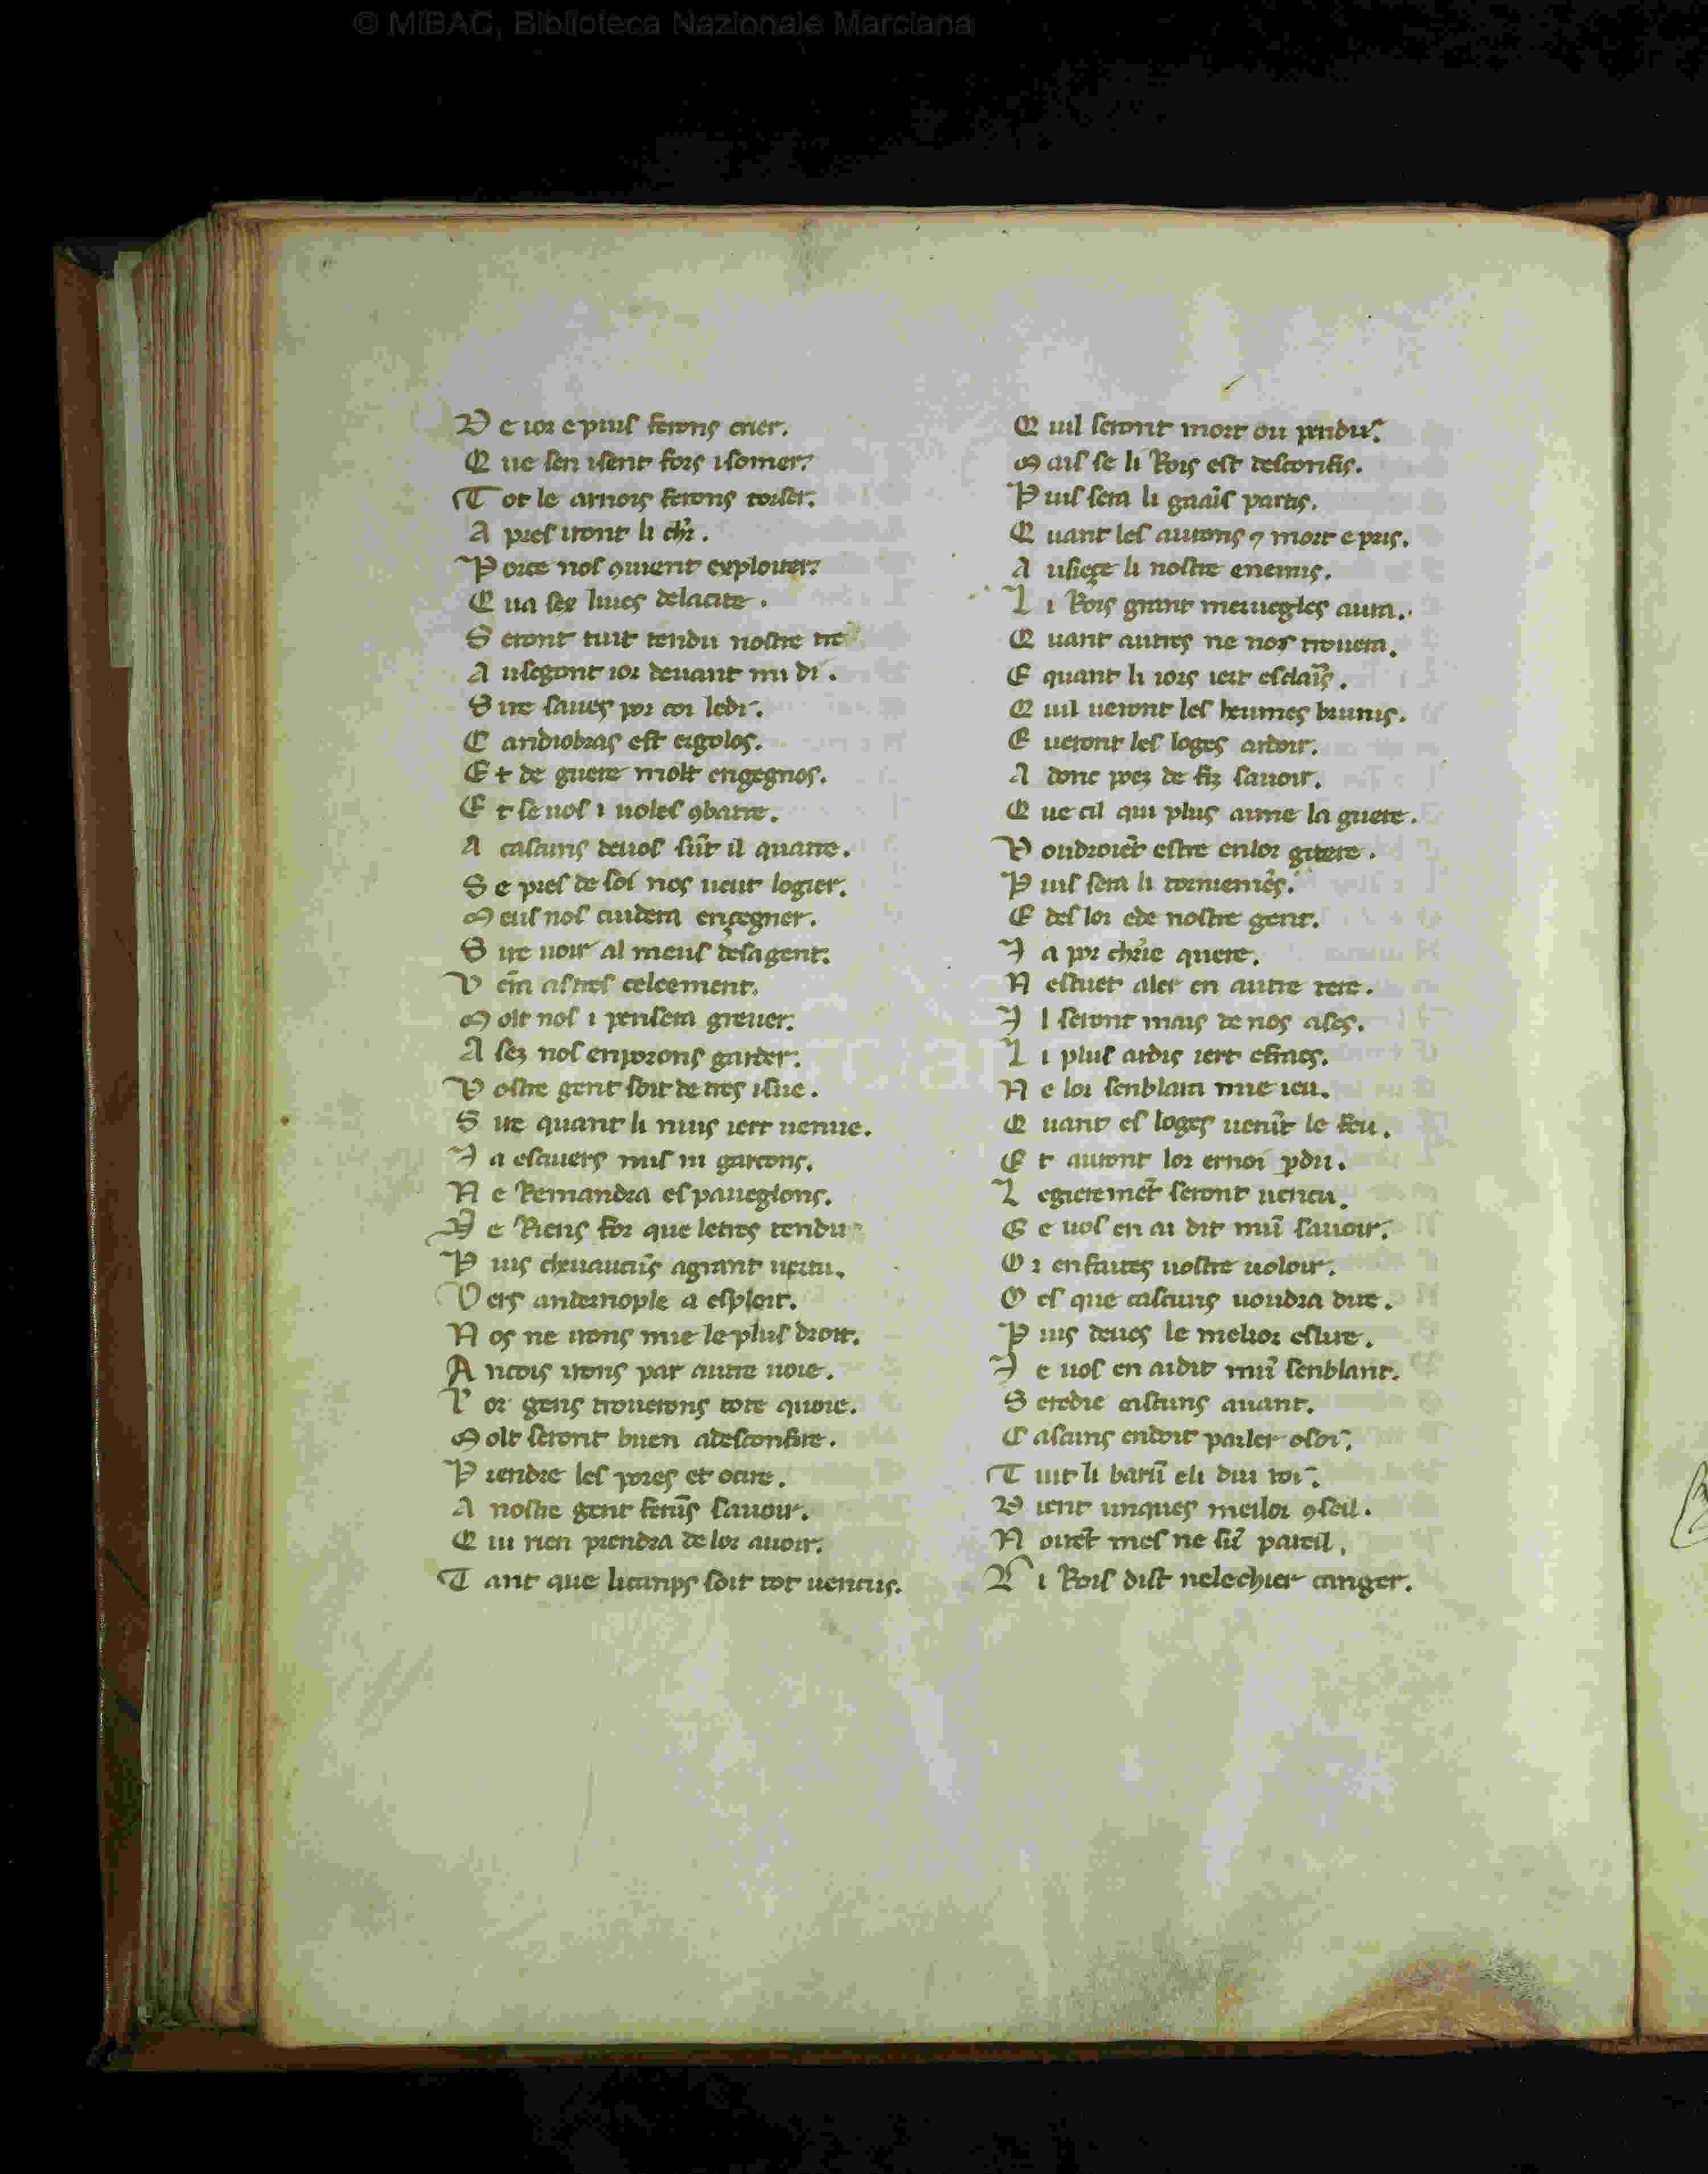 © MiBAC, Biblioteca Nazionale Marciana
D e ior e puis ferons crier.
Q ue sen isent fors isomer.
T ot le arnois ferons torser.
A pres iront li chr̃.
P orce nos ꝯuient exploiter.
Q ua sex liues delacite.
S eront tuit tendu nostre tre
A usegont ior deuant mi di.
S ire saues por coi ledi.
C andiobras est ergolos.
E t de guere molt engegnos.
E t se uos i uoles ꝯbatre.
A cascuns deuos sũt il quatre.
S e pres de soi nos ueut logier.
M eus nos cuidera engegner.
S ire uoir al meus desagent.
V
M olt nos i pensera greuer.
A sez nos enporons garder.
V ostre gent soit de tres isue.
S ire quant li nuis iert uenue.
J a escuiers mis ni garcons.
N e Remandra es paueglons.
N e Riens for que letres tendu
P uis cheuauciũs agrant uertu.
V ers anternople a esploit.
N os ne irons mie le plus droit.
A ncois irons par autre uoie.
L or gens trouerons tote quoie.
M olt seront buen adesconfire.
P rendre les pores et ocire.
A nostre gent ferũs sauoir.
Q ui rien prendra de lor auoir.
T ant que licanps soit tot uencus.
Q uil seront mort ou pendu.
M ais se li Rois est desconfis.
P uis sera li gaaĩs partis.
Q uant les aurons ⁊ mort e pris.
A usiege li nostre enemis.
L i Rois grant meruegles aura.
Q uant autres ne nos trouera.
E quant li iors iert esclaĩs.
Q uil ueront les heumes brunis.
E ueront les loges ardoir.
A donc poez de fiz sauoir.
Q ue cil qui plus aime la guere.
V oudroiẽt estre enlor guere.
P uis sera li torniemẽs.
E des lor ede nostre gent.
J a por chr̃ie quere.
N estuet aler en autre tere.
J l seront mais de nos ases.
L i plus ardis iert efraes.
N e lor senblara mie ieu.
Q uant es loges uenũt le feu.
E t auront lor ernoi pdu.
L egieremẽt seront uencu.
G e uos en ai dit mũ sauoir.
O r enfaites uostre uoloir.
O es que cascuns uoudra dire.
P uis deues le melior eslire.
J e uos en aidit mũ senblant.
S eredie cascuns auant.
C ascuns endoit parler osoi.
T uit li barũ eli diu roi.
D ient unques meilor ꝯseil.
N oirẽt mes ne sũ pareil.
L i Rois dist nelechier canger.